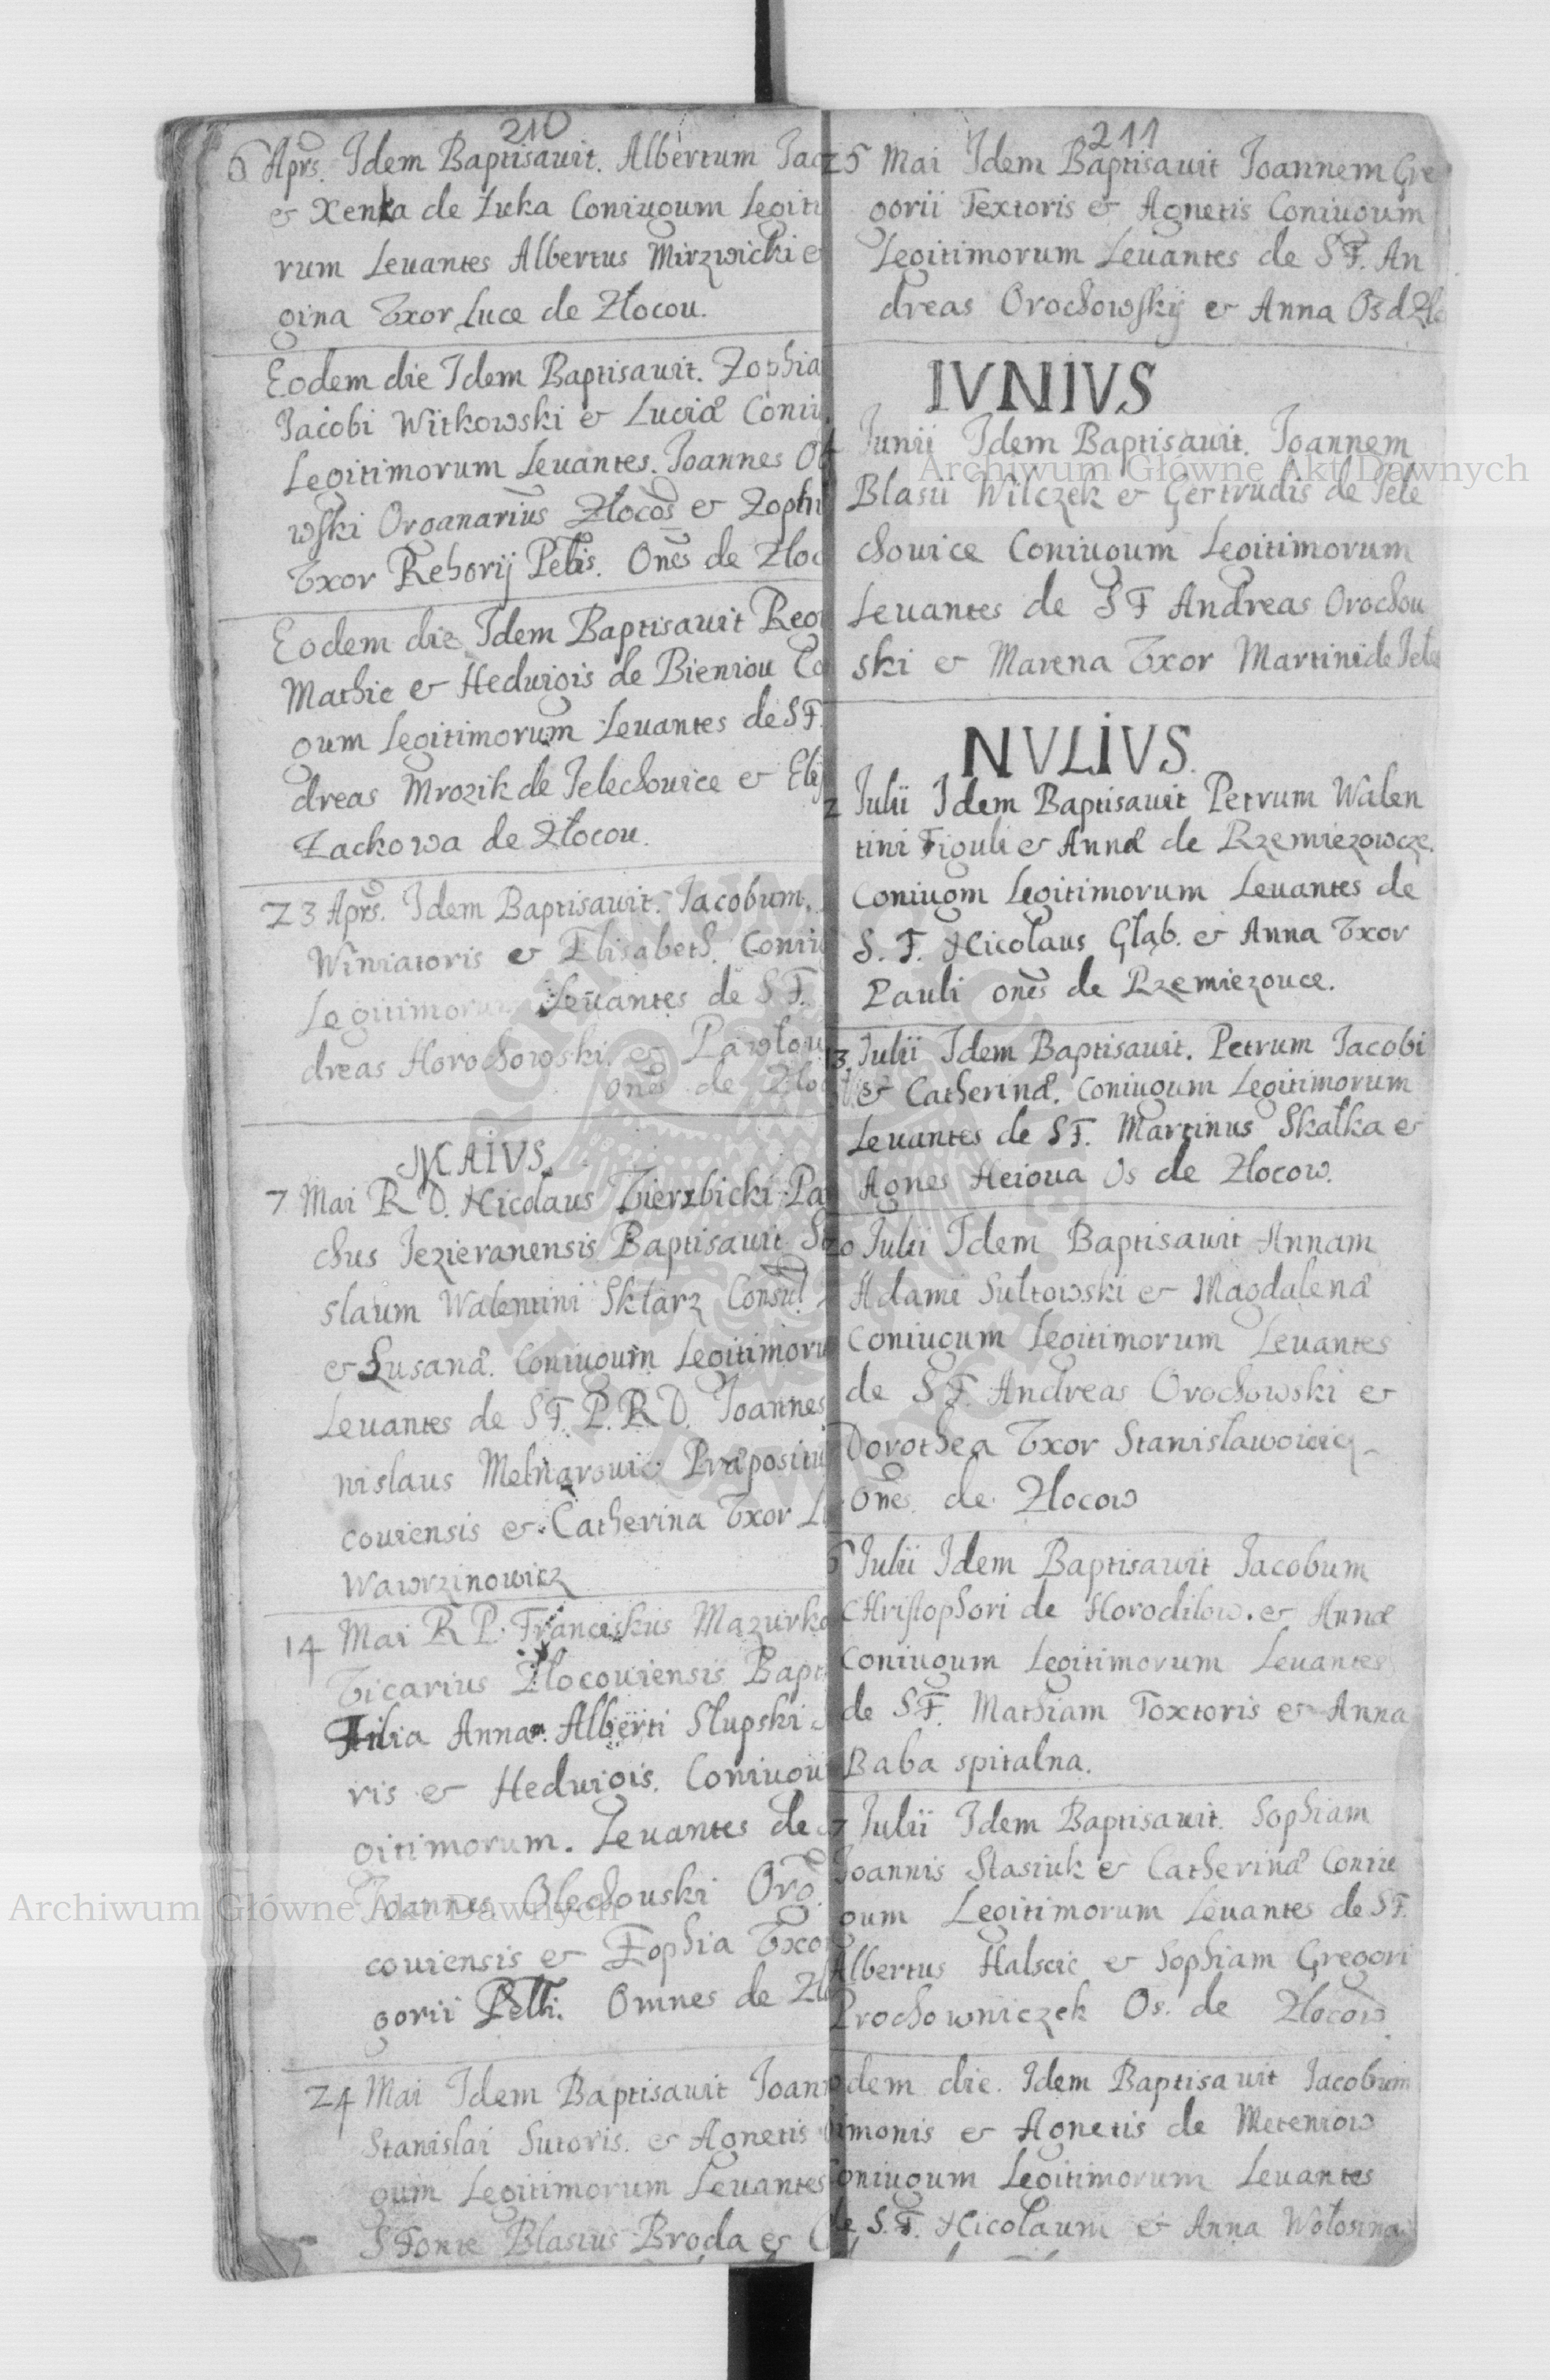 210
6 Aprs. Idem Baptisavit. Albertum Jac
& Xenka de Luka Coniugum Legiti
rum Levantes Albertus Mirzwicki &
gina Vxor Luce de Złocou.
Eodem die Idem Baptisavit. Zophia
Jacobi Witkowski & Luciæ Coniu
Legitimorum Levantes. Joannes
wski Organarius Złocos & Zophi
Vxor Rehorij Pelis. Ones de Zloc
Eodem die Idem Baptisavit Reg
Mathie & Heduigis de Bieniou Co
gum Legitimorum Levantes de SF.
dreas Mrozik de Jelechouice &
Zackowa de Złocou.
23 Aprs. Idem Baptisavit. Jacobum.
Winiatoris & Elisabeth. Coniu
Legitimorum Levantes de S F.
dreas Horochowski. & Pawlou
ones de Zloc
MAIVS.
7 Mai R D. Nicolaus Vierzbicki Pa
chus Jezieranensis Baptisavit
slaum Walentini Sklarz Consul
& Susanæ. Coniugum Legitimoru
Levantes de SF. P. R. D. Joannes
nislaus Melnarouic Præpositu
couiensis & Catherina Vxor
Wawrzinowicz
14 Mai R P. Franciskus Mazurko
Vicarius Zlocouiensis Bapti
Filia Annam Alberti Slupski
ris & Heduigis. Coniugu
gitimorum. Levantes de
Joannes Olechouski Org.
couiensis & Zophia Vxor
gorii Pelli. Omnes de Zlo
24 Mai Idem Baptisavit Joann
Stanislai Sutoris. & Agnetis
gum Legitimorum Levantes
S Fonte Blasius Broda &
211
25 Mai Idem Baptisavit Joannem Gre
gorii Textoris & Agnetis Coniugum
Legitimorum Levantes de S F. An
dreas Orochowskij & Anna Os d Zlo
IVNIVS
Junii Idem Baptisavit. Joannem
Blasii Wilczek & Gertrudis de Jele
chouice Coniugum Legitimorum
Levantes de S F Andreas Orochou
ski & Marena Vxor Martini de Jele
NVLIVS.
2 Julii Idem Baptisavit Petrum Walen
tini Figuli & Annæ de Rzemiezowcze.
Coniugm Legitimorum Levantes de
S. F. Nicolaus Głąb. & Anna Vxor
Pauli ones de Rzemiezouce.
13 Julii Idem Baptisavit. Petrum Jacobi
& Catherinæ. Coniugum Legitimorum
Levantes de SF. Martinus Skałka &
Agnes Heioua Os de Zlocow.
20 Julii Idem Baptisavit Annam
Adami Sułtowski & Magdalenæ
Coniugum Legitimorum Levantes
de S F. Andreas Orochowski &
Dorothea Vxor
ones. de Zlocow
6 Julii Idem Baptisavit Jacobum
Christophori de Horodilow. & Annæ
Coniugum Legitimorum Levantes
de S F. Mathiam Toxtoris & Anna
Baba spitalna.
7 Julii Idem Baptisavit. Sophiam
Joannis Stasiuk & Catherinæ Coniu
gum Legitimorum Levantes de S F.
Albertus Halscic & Sophiam Gregori
Prochowniczek Os. de Zlocow
dem die. Idem Baptisavit Jacobum
imonis & Agnetis de Meteniow
oniugum Legitimorum Levantes
de S. F. Nicolaum & Anna Wołosina
Archiwum Główne Akt Dawnych
Archiwum Główne Akt Dawnych